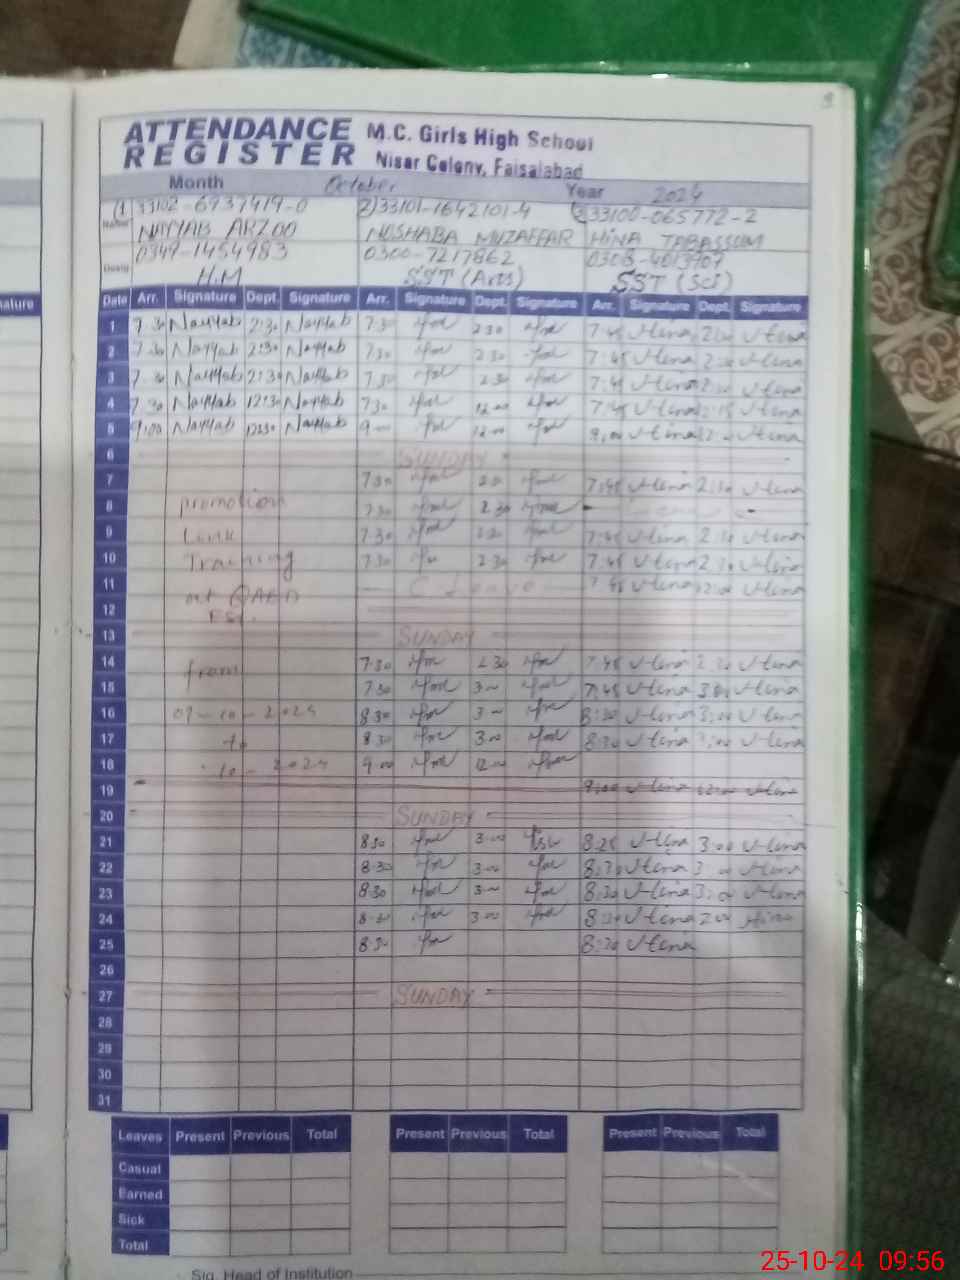 9
ATTENDANCE REGISTER
M.C. Girls High School
Nisar Colony, Faisalabad
Month October Year 2024
Name
(1) 33102-6937419-0 (2) 33101-1642101-4 (3) 33100-065772-2
NAYYAB ARZOO NOSHABA MUZAFFAR HINA TABASSUM
0349-1454983 0300-7217862
Desig
H.M SST (Arts) SST (Sci)
nature
Date Arr. Signature Dept. Signature Arr. Signature Dept. Signature Arr. Signature Dept. Signature
1 7.30 Nayyab 2:30 Nayyab 7:30 2 30 7:45 Hina 2:30 Hina
2 7.30 Nayyab 2:30 Nayyab 7:30 2 30 7:45 Hina 2:30 Hina
3 7.30 Nayyab 2:30 Nayyab 7:30 2 30 7:45 Hina Hina
4 7.30 Nayyab 12:30 Nayyab 7:30 12 00 7:45 Hina 12:15 Hina
5 9:00 Nayyab 1230 Nayyab 9-00 12 00 9:00 Hina Hina
6 SUNDAY
7 7:30 2 30 7:45 Hina 2:30 Hina
8 promotion 7:30 2 30
9 Link 7.30 2 30 7:45 Hina 2:30 Hina
10 Training 7:30 2 30 7:45 Hina 2:30 Hina
11 at QAED C Leave 7:45 Hina 12:00 Hina
12 FSD.
13 SUNDAY
14 from 7:30 2 30 7:45 Hina 2:30 Hina
15 7:30 3-00 7:45 Hina 3:00 Hina
16 07-10-2024 8:30 3-00 8:30 Hina 3:00 Hina
17 to 8:30 3:00 8:30 Hina 3:00 Hina
18 -10-2024 9-00 12:00
19 9:00 Hina 12:00 Hina
20 SUNDAY
21 8:30 3:00 8:25 Hina 3:00 Hina
22 8:30 3:00 8:30 Hina 3:00 Hina
23 8:30 3:00 8:30 Hina 3:00 Hina
24 8:30 3:00 8:30 Hina 2:00 Hina
25 8:30 8:30 Hina
26
27 SUNDAY
28
29
30
31
Leaves Present Previous Total Present Previous Total Present Previous Total
Casual
Earned
Sick
Total
Sig. Head of Institution
25-10-24 09:56